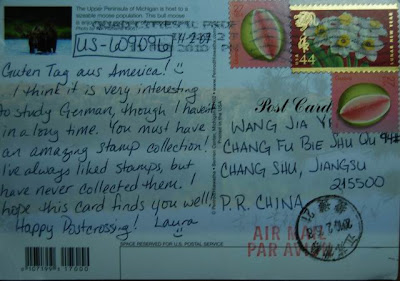 The Upper Peninsula of Michigan is host to a
sizeable moose population. This bull moose
US-609696
Guten Tag aus America! ☺
I think it is very interesting
to study German, though I haven't
in a long time. You must have
an amazing stamp collection!
I've always liked stamps, but
have never collected them. I
hope this card finds you well!
Happy Postcrossing! Laura ☺
44
Post Card
WANG JIA
CHANG FU BIE SHU QU
CHANG SHU, JIANGSU
215500
P.R. CHINA
AIR MAIL
PAR AVION
SPACE RESERVED FOR U.S. POSTAL SERVICE